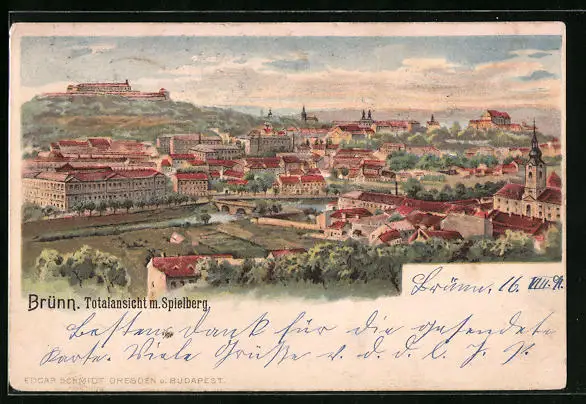 Brünn. Totalansicht m. Spielberg.
Brünn, 16. VIII.
Besten Dank für die gesendete
Karte. Viele Grüße v. d. d. l. J. P.
EDGAR SCHMIDT DRESDEN u. BUDAPEST.